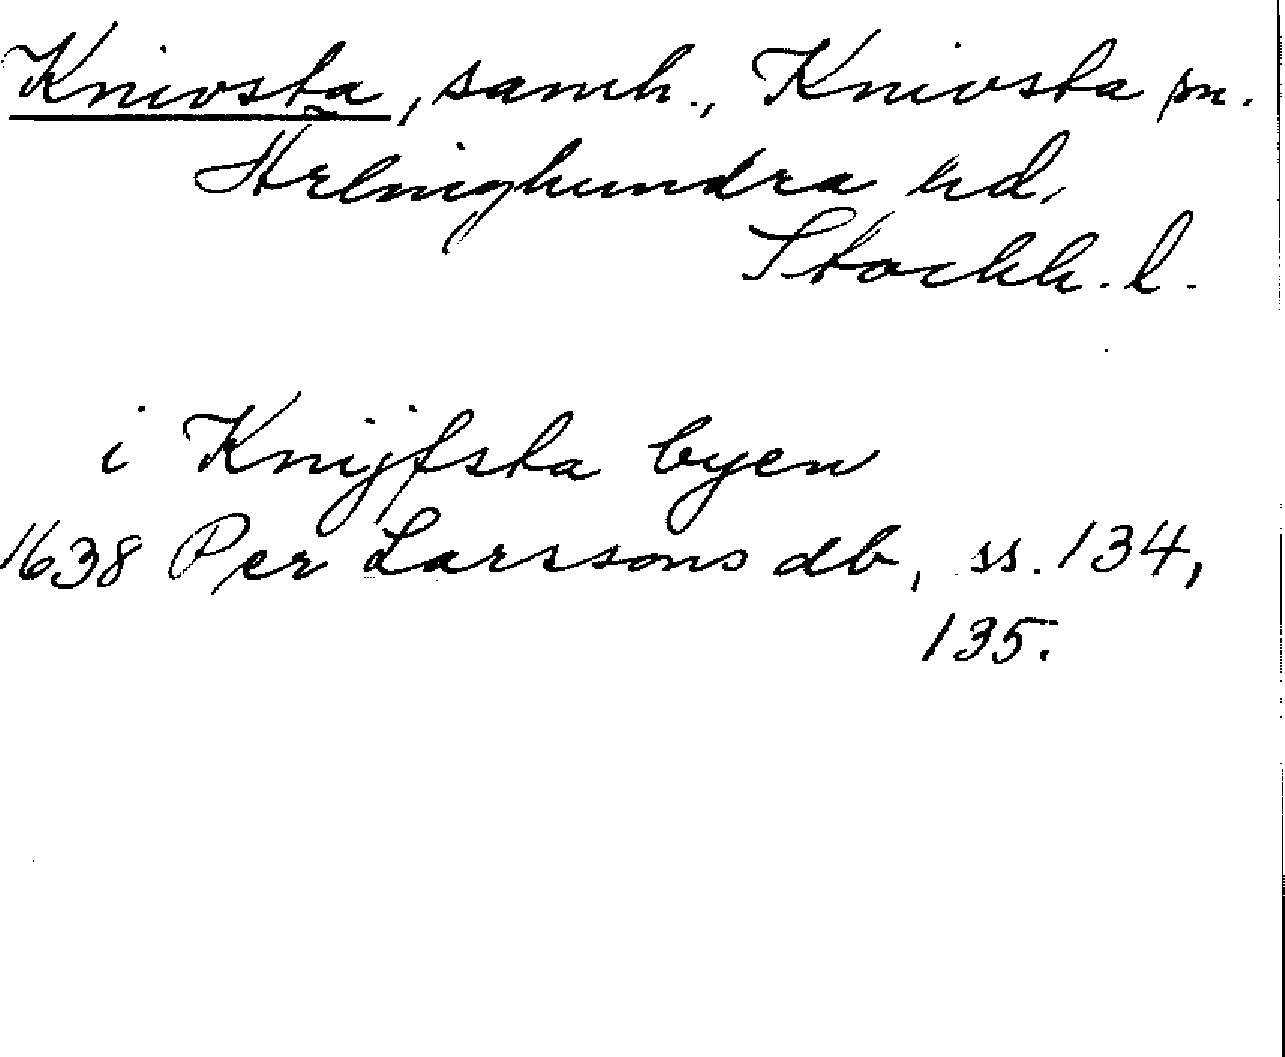 Knivsta, samh., Knivsta sn.
Ärlinghundra hd,
Stockh. l.
i Knijfsta byen
1638 Per Larssons db, ss. 134,
135.